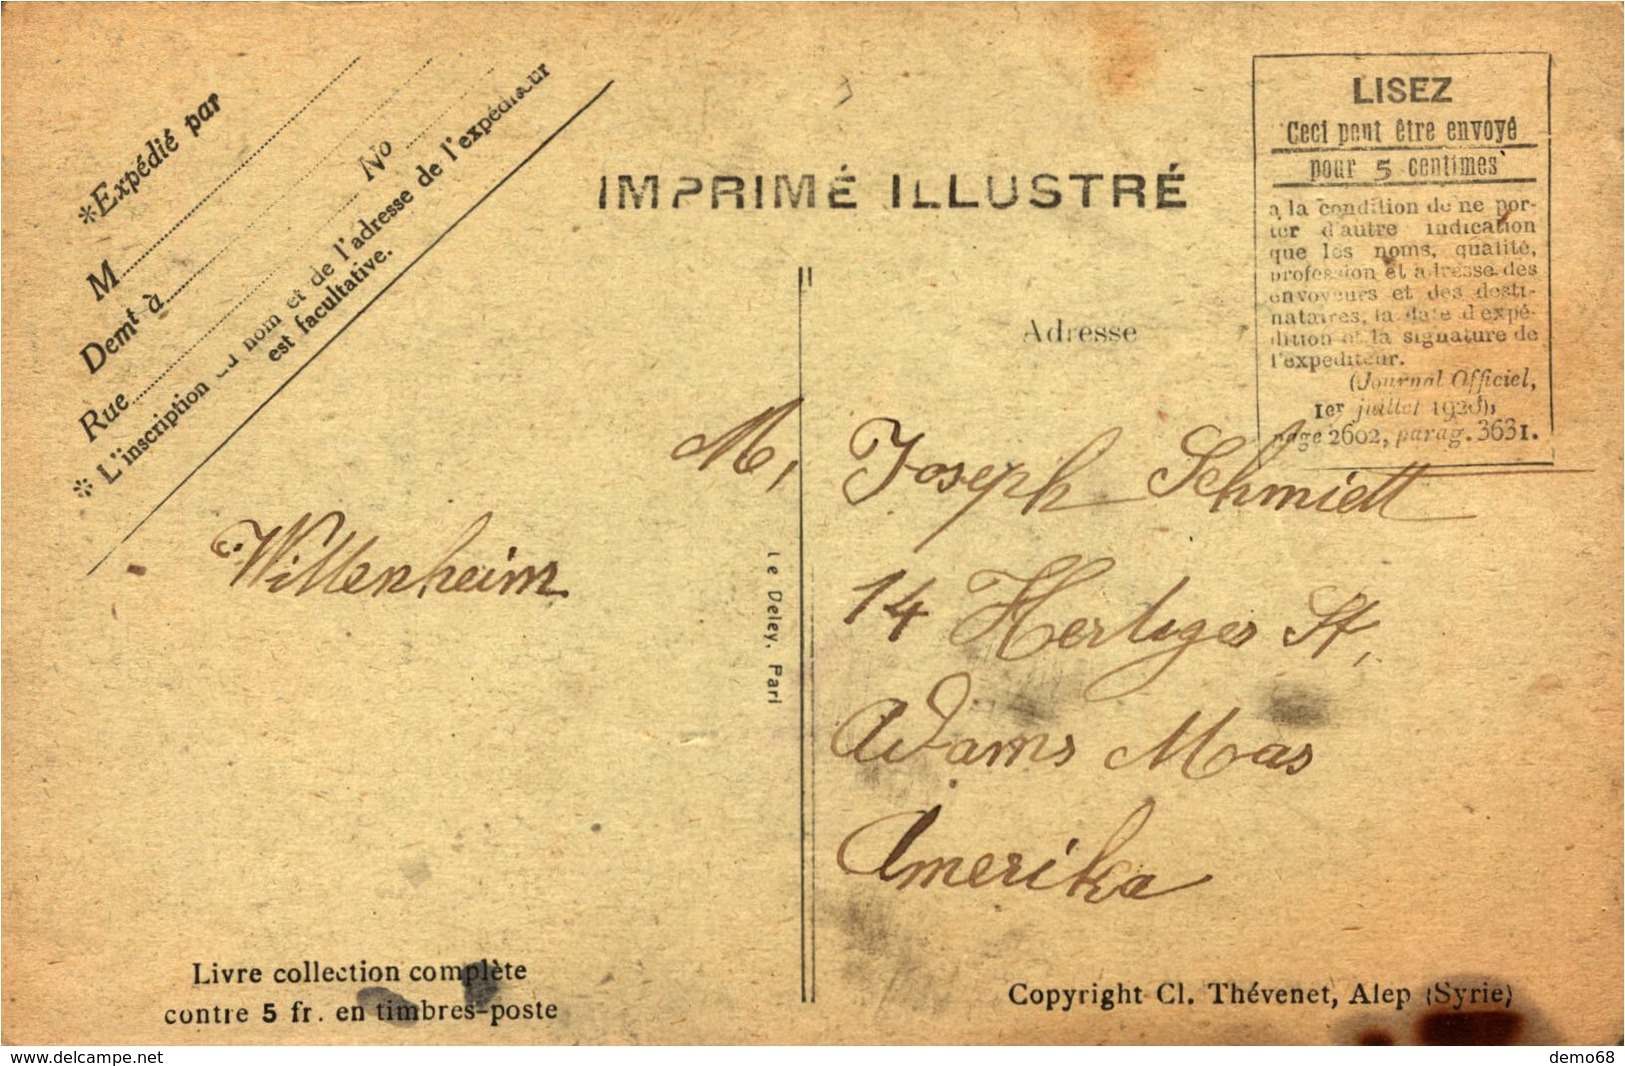 *Expédié par
M
Demt à
Rue No
* L'inscription du nom et de l'adresse de l'expéditeur
est facultative.
IMPRIMÉ ILLUSTRÉ
LISEZ
Ceci peut être envoyé
pour 5 centimes
a la condition de ne por-
ter d'autre indication
que les noms, qualité,
profession et adresse des
envoyeurs et des desti-
nataires, la date d'expé-
dition et la signature de
l'expediteur.
(Journal Officiel,
1er juillet
page 2602, parag. 3631.
Adresse
M, Joseph Schmidt
14 St,
Adams Mas
Amerika
Wittenheim
Le Deley, Pari
Livre collection complète
contre 5 fr. en timbres-poste
Copyright Cl. Thévenet, Alep (Syrie)
www.delcampe.net
demo68